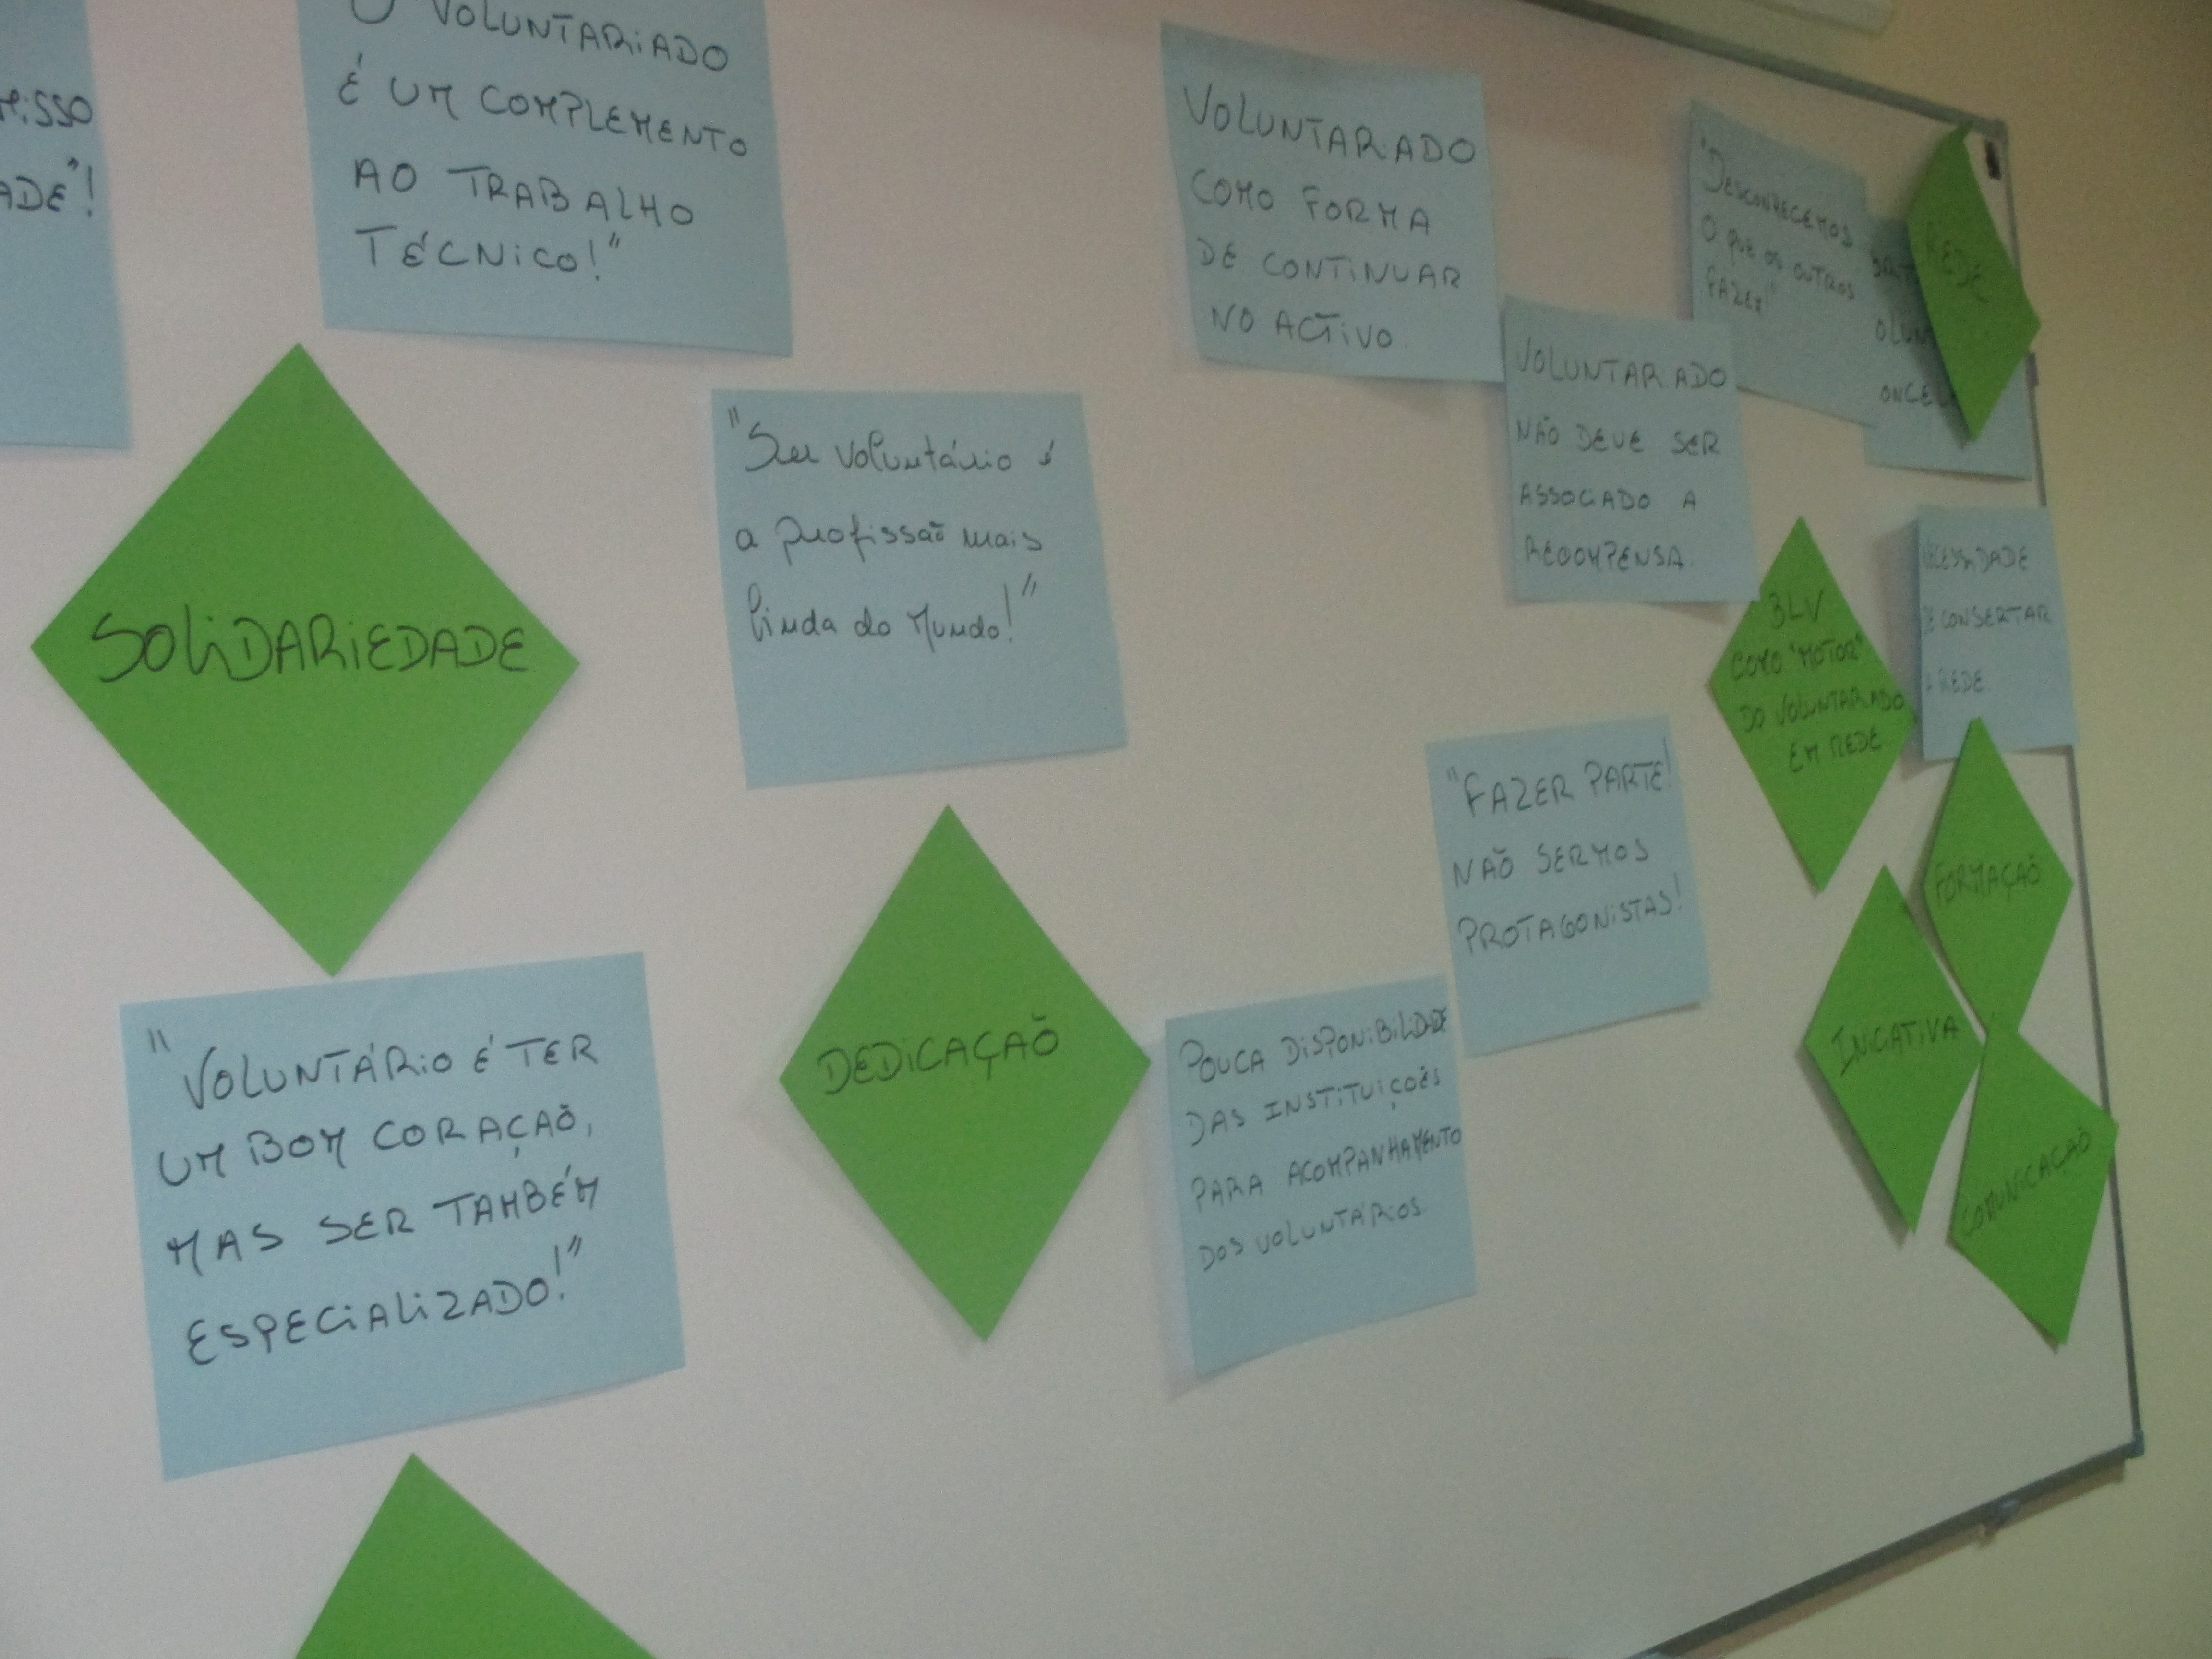 MISSO
ADE"!
O VOLUNTARIADO
É UM COMPLEMENTO
AO TRABALHO
TÉCNICO!"
VOLUNTARIADO
COMO FORMA
DE CONTINUAR
NO ACTIVO.
"DESCONHECEMOS
O QUE OS OUTROS
FAZEM!"
OLUN
ONCEL
REDE
VOLUNTARIADO
NÃO DEVE SER
ASSOCIADO A
RECOMPENSA.
SOLIDARIEDADE
"Ser voluntário é
a profissão mais
linda do Mundo!"
BLV
COMO "MOTOR"
DO VOLUNTARIADO
EM REDE
CESSIDADE
DE CONSERTAR
A REDE
"FAZER PARTE!
NÃO SERMOS
PROTAGONISTAS!
FORMAÇÃO
"VOLUNTÁRIO É TER
UM BOM CORAÇÃO,
MAS SER TAMBÉM
ESPECIALIZADO!"
DEDICAÇÃO
POUCA DISPONIBILIDADE
DAS INSTITUIÇÕES
PARA ACOMPANHAMENTO
DOS VOLUNTÁRIOS.
INICIATIVA
COMUNICAÇÃO